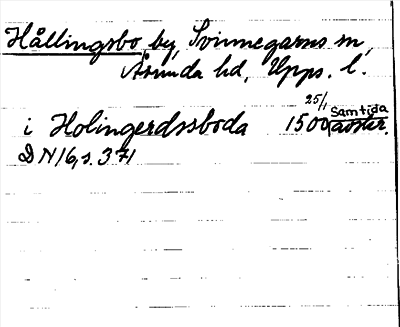 Hållingsbo, by, Svinnegarns sn,
Åsunda hd, Upps. l.
i Holingerdssboda 1500 25/1 Samtida avskr.
DN 16, s. 371